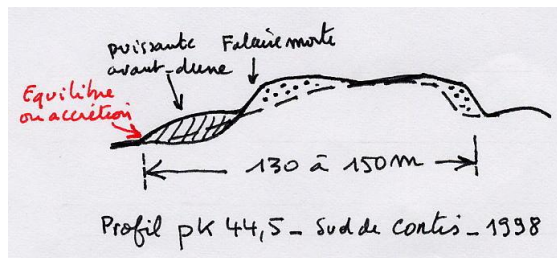 puissante
avant-dune
Falaise morte
Equilibre
ou accrétion
130 à 150m
Profil pk 44,5 - Sud de contis - 1998